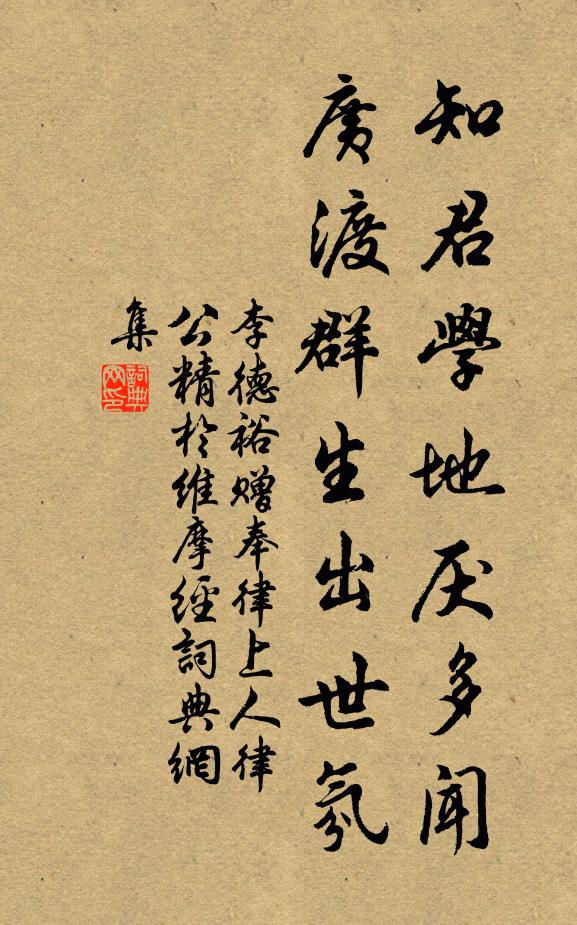 知君學地厌多聞
廣渡群生出世氛
李德裕贈奉律上人律
公精於維摩經詞典網
集
詞典
网印